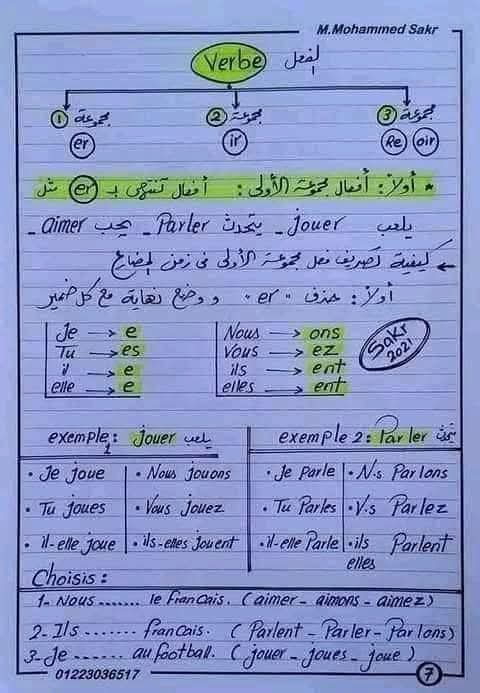 M.Mohammed Sakr
Verbe الفعل
① مجموعة ② مجموعة ③ مجموعة
er ir Re oir
* أولاً: أفعال مجموعة الأولى: أفعال تنتهى بـ er مثل
_ aimer يحب _ Parler يتحدث _ jouer يلعب
← كيفية تصريف فعل مجموعة الأولى فى زمن المضارع
أولاً: حذف "er" و وضع نهاية مع كل ضمير
Je → e Nous → ons
Tu → es Vous → ez
il → e ils → ent
elle → e elles → ent
Sakr
2021
exemple 1: jouer يلعب exemple 2: Parler يتحدث
• Je joue • Nous jouons • Je Parle • N.s Parlons
• Tu joues • Vous jouez • Tu Parles • V.s Parlez
• il-elle joue • ils-elles jouent • il-elle Parle • ils elles Parlent
Choisis:
1- Nous ....... le francais. (aimer - aimons - aimez)
2- Ils ....... francais. (Parlent - Parler - Parlons)
3- Je ...... au football. (jouer - joues - joue)
01223036517 7